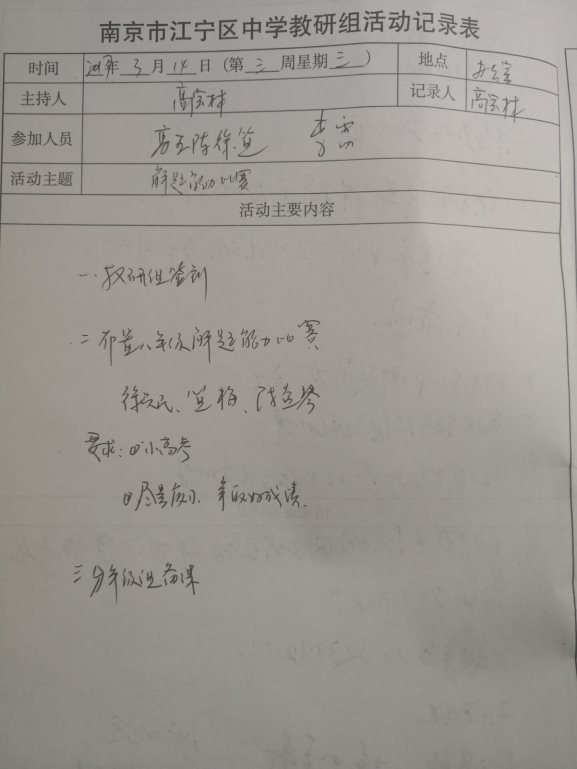 南京市江宁区中学教研组活动记录表
时间 年3月14日(第三周星期三) 地点 办公室
主持人 高宗林 记录人 高宗林
参加人员 高 陈 徐
活动主题 解题能力比赛
活动主要内容
一、教研组签到
二 布置八年级解题能力比赛
徐 民、 梅、陈
要求:①小高考
② 争取好成绩.
三 分年级组备课